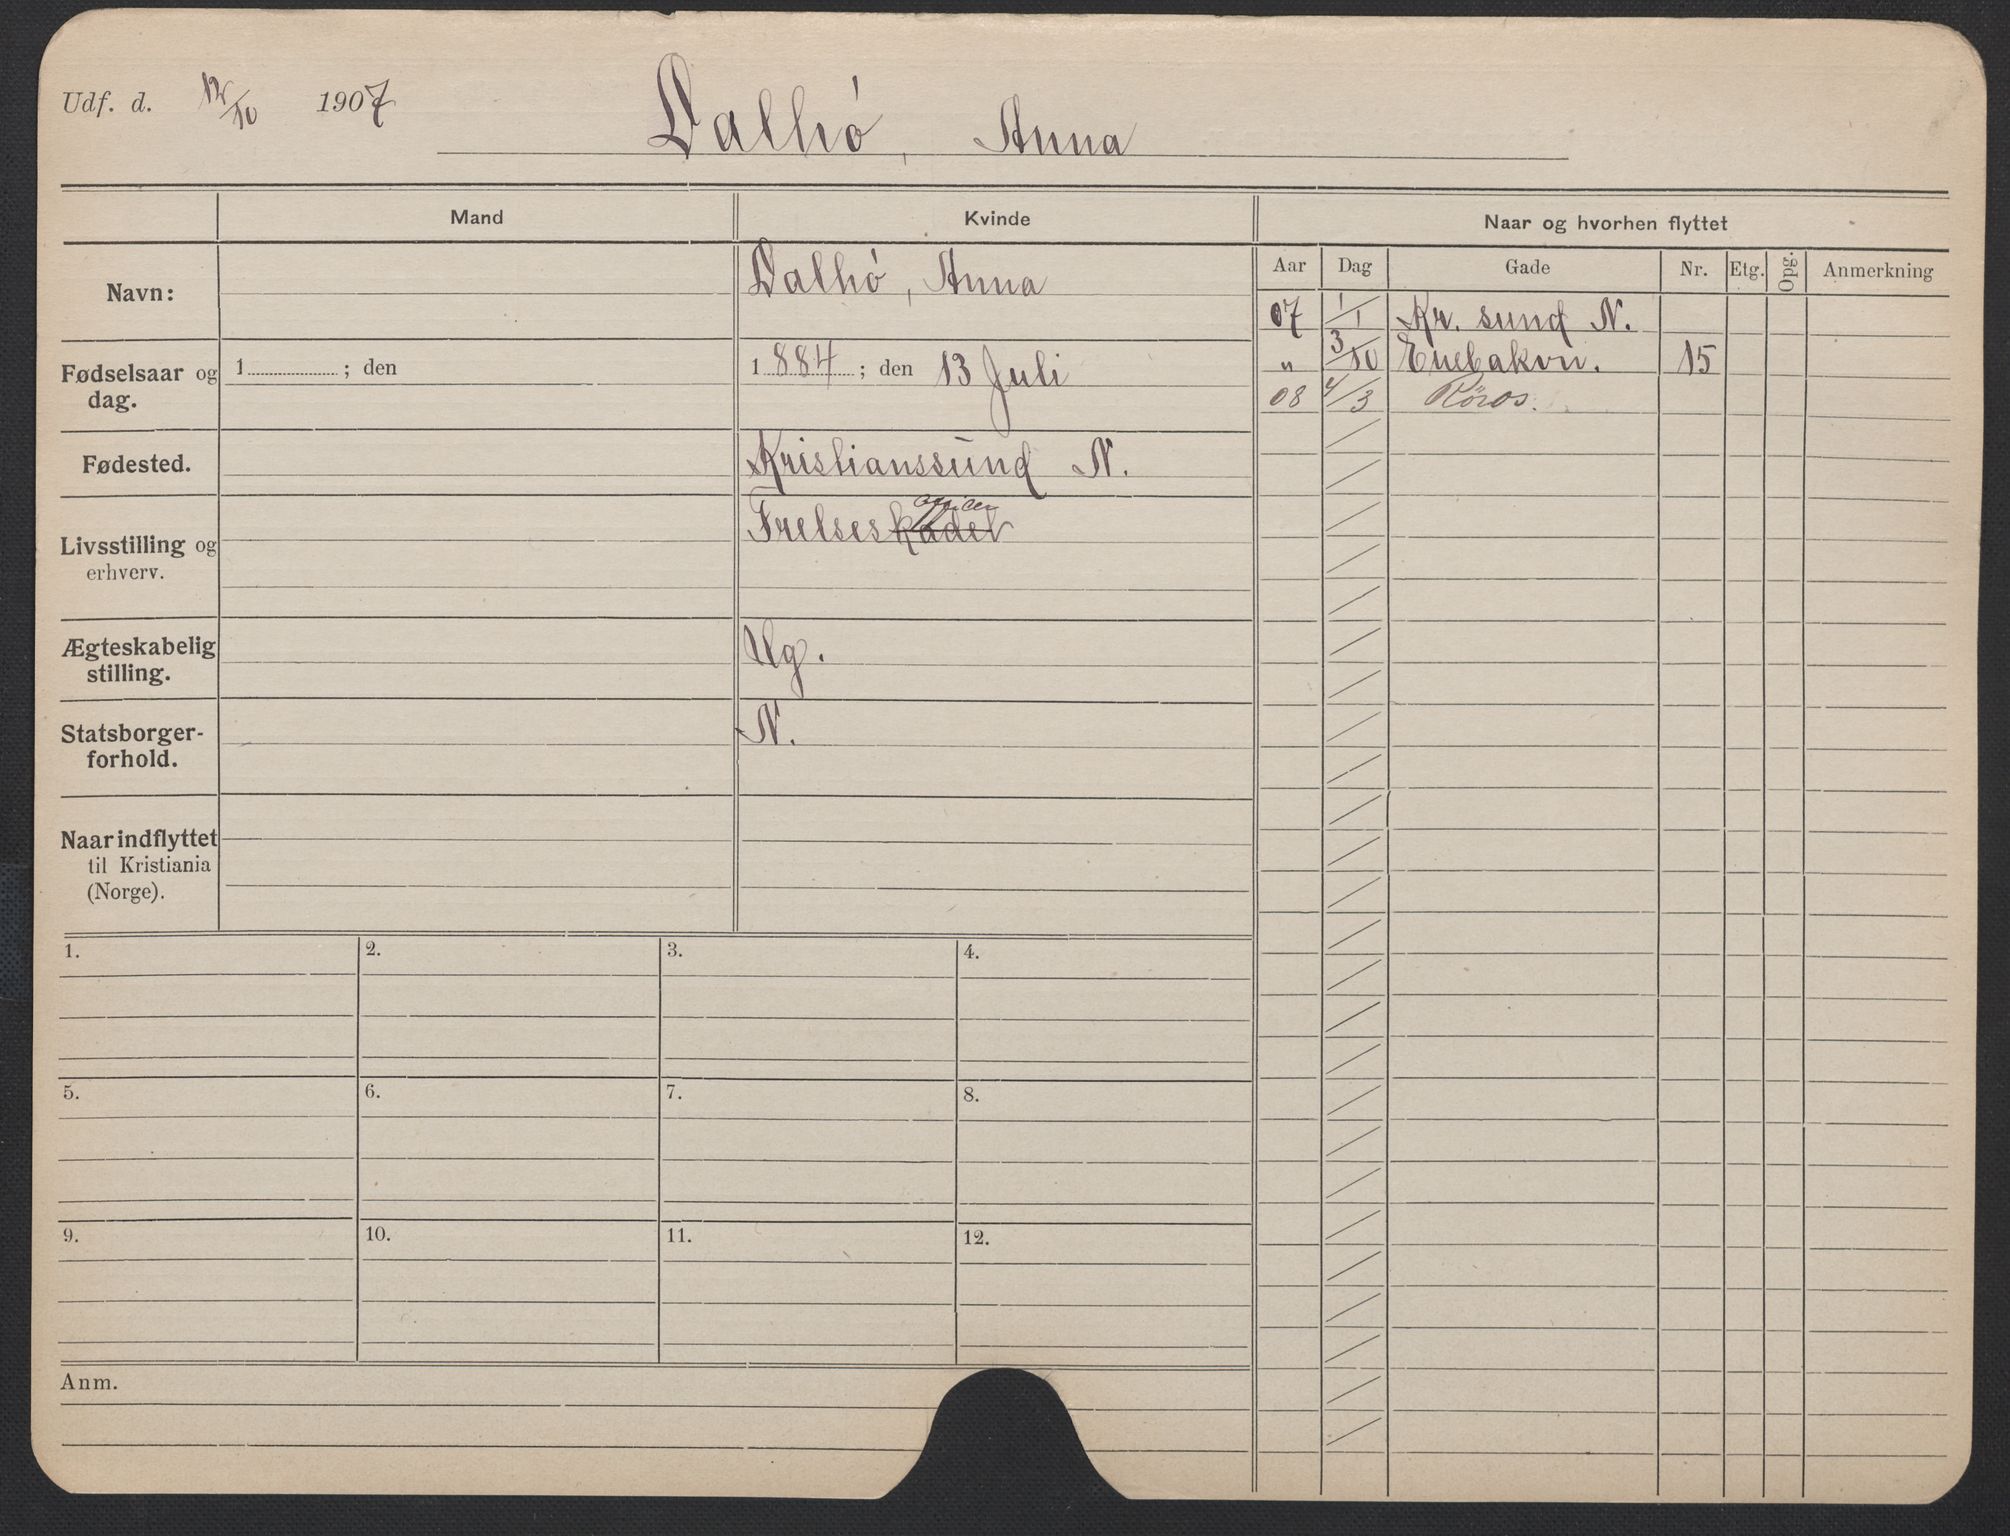 Udf. d. 12/10 1907
Dalhó, Anna
Mand
Kvinde
Naar og hvorhen flyttet
Aar Dag Gade Nr. Etg. Opg. Anmerkning
Navn:
Dalhó, Anna
07 1/1 Kr. sund N.
Fødselsaar og
dag.
1 ; den
1884 ; den 13 Juli
" 3/10 Enebakvn. 15
08 4/3 Röros.
Fødested.
Kristianssund N.
Livsstilling og
erhverv.
officer
Frelseskadet
Ægteskabelig
stilling.
Ug.
Statsborger-
forhold.
N.
Naar indflyttet
til Kristiania
(Norge).
1. 2. 3. 4.
5. 6. 7. 8.
9. 10. 11. 12.
Anm.